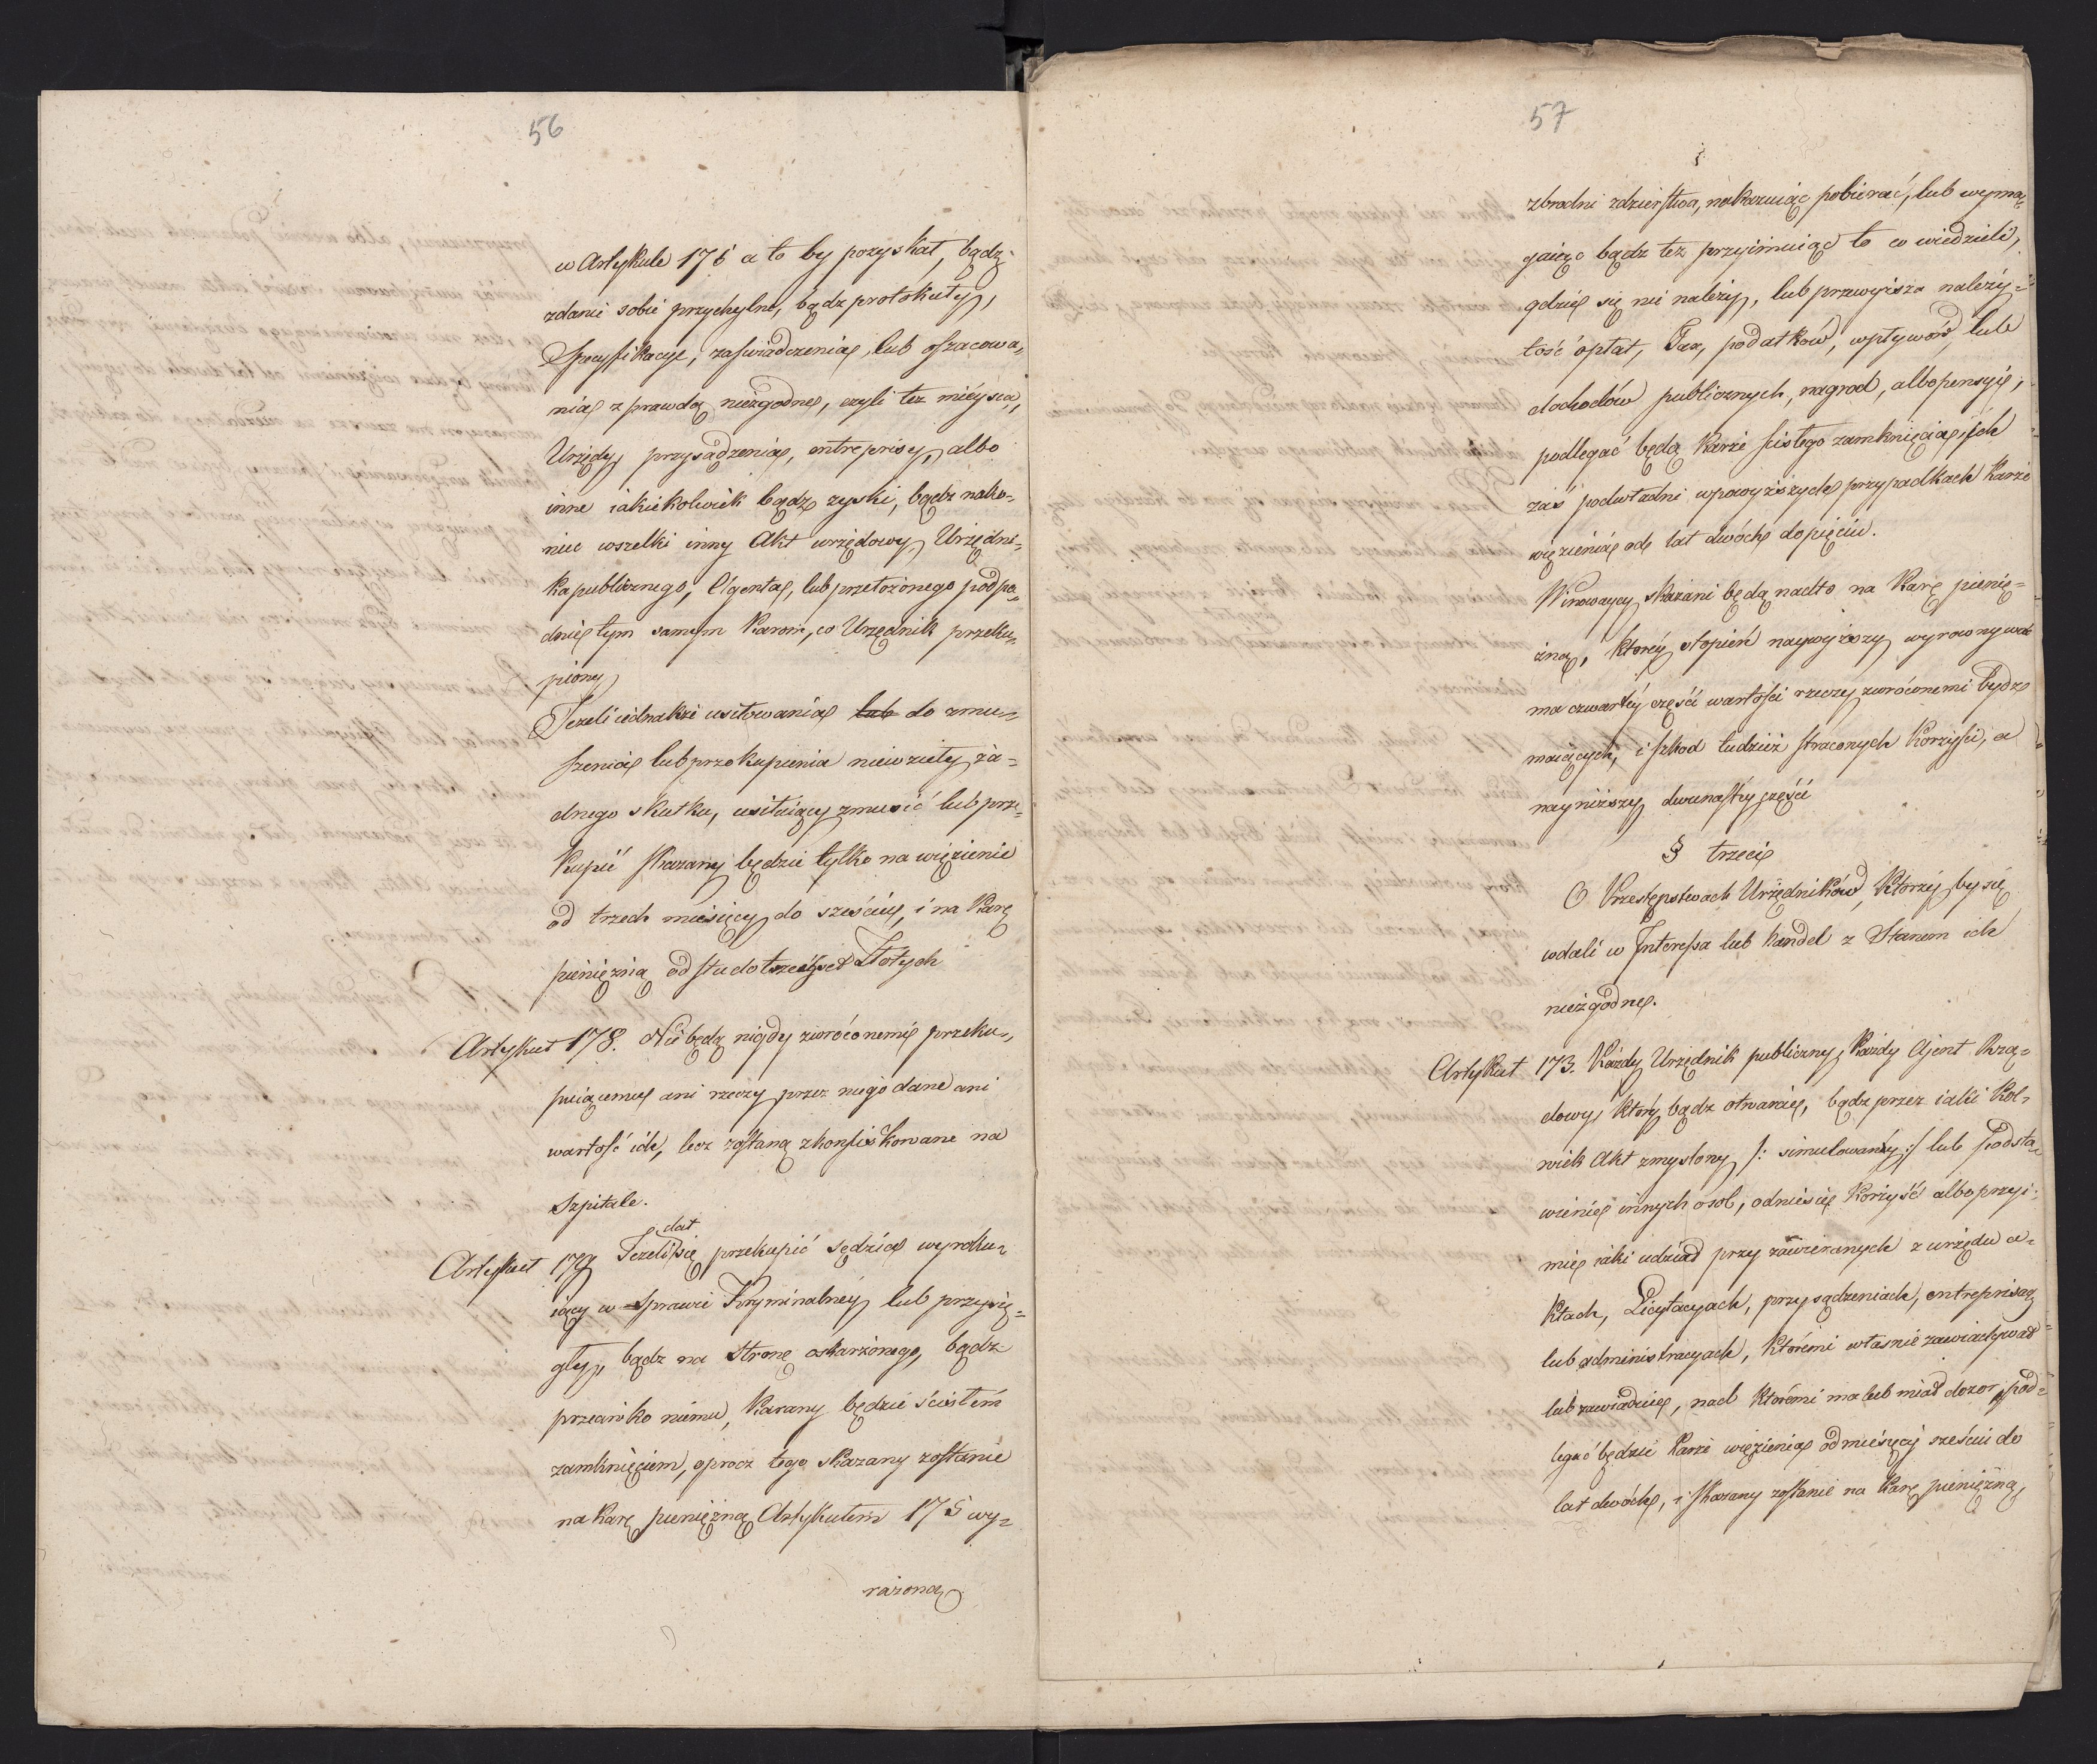 56
w Artykule 175 a to by pozyskał, bądź
zdanie sobie przychylne, bądz protokuły,
Specyfikacye, zaświadczenia, lub oszacowa„
nia z prawdą niezgodne, czyli też mieysca,
Urzędy przysądzenia, entreprisy, albo
inne iakiekolwiek bądz zyski, bądz nako„
niec wszelki inny Akt urzędowy Urzędni„
ka publicznego, Agenta, lub przełożonego podpa„
dnie tym samym karom, co Urzędnik przeku„
piony
Jeżeli iednakże usiłowania lub do zmu„
szenia lub przekupienia niewzieły ża„
dnego skutku, usiłuiący zmusić lub prze„
kupić skazany będzie tylko na więzienie
od trzech miesięcy do sześciu, i na karę
pieniężną od stu do trzechset Złotych
Artykuł 178. Nie będą nigdy zwróconemi przeku„
puiącemu ani rzeczy przez niego dane ani
wartość ich, lecz zostaną zkonfiskowane na
Szpitale.
dał
Artykuł 179 Jeżeli się przekupić sędzia wyroku„
iący w Sprawie Kryminalney lub przysię„
gły, bądz na stronę oskarżonego, bądz
przeciwko niemu, karany będzie ścisłem
zamknięciem, oprocz tego skazany zostanie
na karę pieniężną Artykułem 175 wy„
rażoną
57
zbrodni zdzierstwa, nakazuiąc pobierać, lub wyma„
gaiąc bądz też przyimuiąc to co wiedzieli,
gdzie się nie należy, lub przewyższa należy„
tość opłat, Tax, podatków, wpływów, lub
dochodów publicznych, nagrod, albo pensyi,
podlegać będą karze scisłego zamknięcia, ich
zaś podwładni w powyższych przypadkach karze
więzienia od lat dwóch do pięciu.
Winowaycy skazani będą nadto na karę pienię„
żną, ktorey stopień naywyższy wyrownywać
ma czwartey części wartości rzeczy zwróconemi bydz
maiących, i szkod tudzież straconych korzyści, a
nayniższy dwunastey części
§ trzeci
O Przestępstwach Urzędników, którzy by się
wdali w Interessa lub handel z Stanem ich
niezgodne.
Artykuł 173. Każdy Urzędnik publiczny, każdy Ajent Rzą„
dowy, który bądz otwarcie, bądz przez iaki kol„
wiek Akt zmyslony /: simulowany :/ lub podsta„
wienie innych osob, odniesie korzyść albo przyi„
mie iaki udział przy zawieranych z urzędu a„
ktach, Licytacyach, przysądzeniach, entreprisach
lub administracyach, któremi własnie zawiadywał
lub zawiaduie, nad któremi ma lub miał dozor, pod„
legać będzie karze więzienia od miesięcy sześciu do
lat dwóch, i skazany zostanie na karę pieniężną,